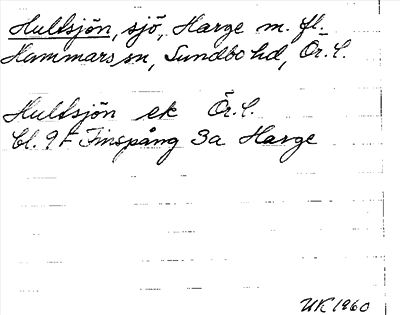 Hultsjön, sjö, Harge m. fl.
Hammars sn, Sundbo hd, Ör. l.
Hultsjön ek Ör. l.
bl. 9F Finspång 3a Harge
UK 1960